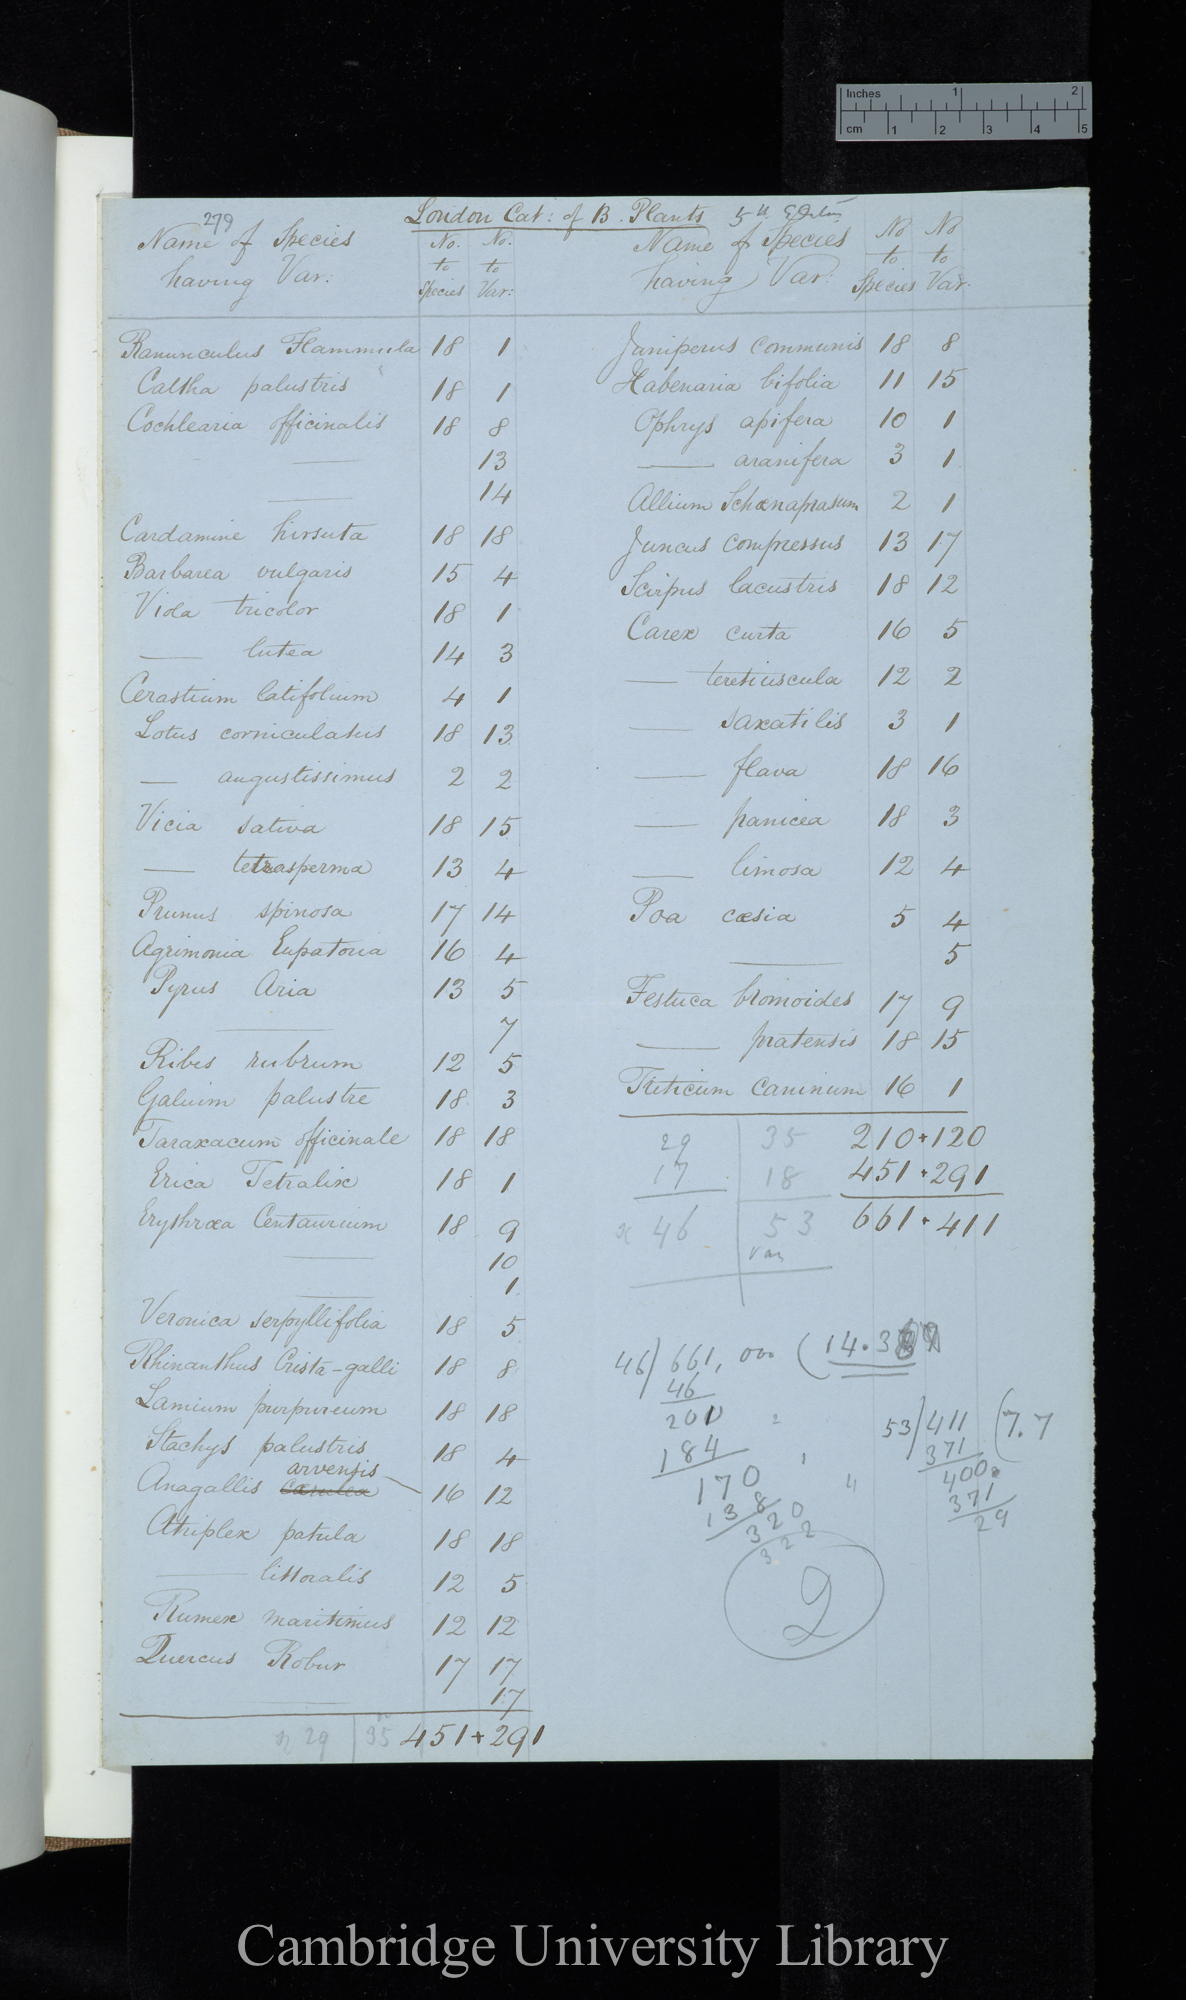 Inches 1 2
cm 1 2 3 4 5
279
London Cat: of B. Plants 5th Edition
Name of Species having Var: No. to Species No. to Var:
Ranunculus Flammula 18 1
Caltha palustris 18 1
Cochlearia officinalis 18 8
—— 13
—— 14
Cardamine hirsuta 18 18
Barbarea vulgaris 15 4
Viola tricolor 18 1
—— lutea 14 3
Cerastium latifolium 4 1
Lotus corniculatus 18 13
— augustissimus 2 2
Vicia sativa 18 15
—— tetrasperma 13 4
Prunus spinosa 17 14
Agrimonia Eupatoria 16 4
Pyrus Aria 13 5
—— 7
Ribes rubrum 12 5
Galium palustre 18 3
Taraxacum officinale 18 18
Erica Tetralix 18 1
Erythræa Centaurium 18 9
—— 10
—— 1
Veronica serpyllifolia 18 5
Rhinanthus Crista-galli 18 8
Lamium purpureum 18 18
Stachys palustris 18 4
arvensis
Anagallis cærulea 16 12
Atriplex patula 18 18
—— littoralis 12 5
Rumex maritimus 12 12
Quercus Robur 17 17
—— 17
29 35 451+291
Name of Species having Var: No to Species No to Var.
Juniperus communis 18 8
Habenaria bifolia 11 15
Ophrys apifera 10 1
—— aranifera 3 1
Allium Schœnaprasum 2 1
Juncus compressus 13 17
Scirpus lacustris 18 12
Carex curta 16 5
—— teretiuscula 12 2
—— saxatilis 3 1
—— flava 18 16
—— panicea 18 3
—— limosa 12 4
Poa cæsia 5 4
—— 5
Festuca bromoides 17 9
—— pratensis 18 15
Triticum caninum 16 1
29 35 210+120
17 18 451+291
46 53 661+411
Var
46) 661,000 (14.3
46
201
184
170
138
320
322
53) 411 (7.7
371
400
371
29
2
Cambridge University Library